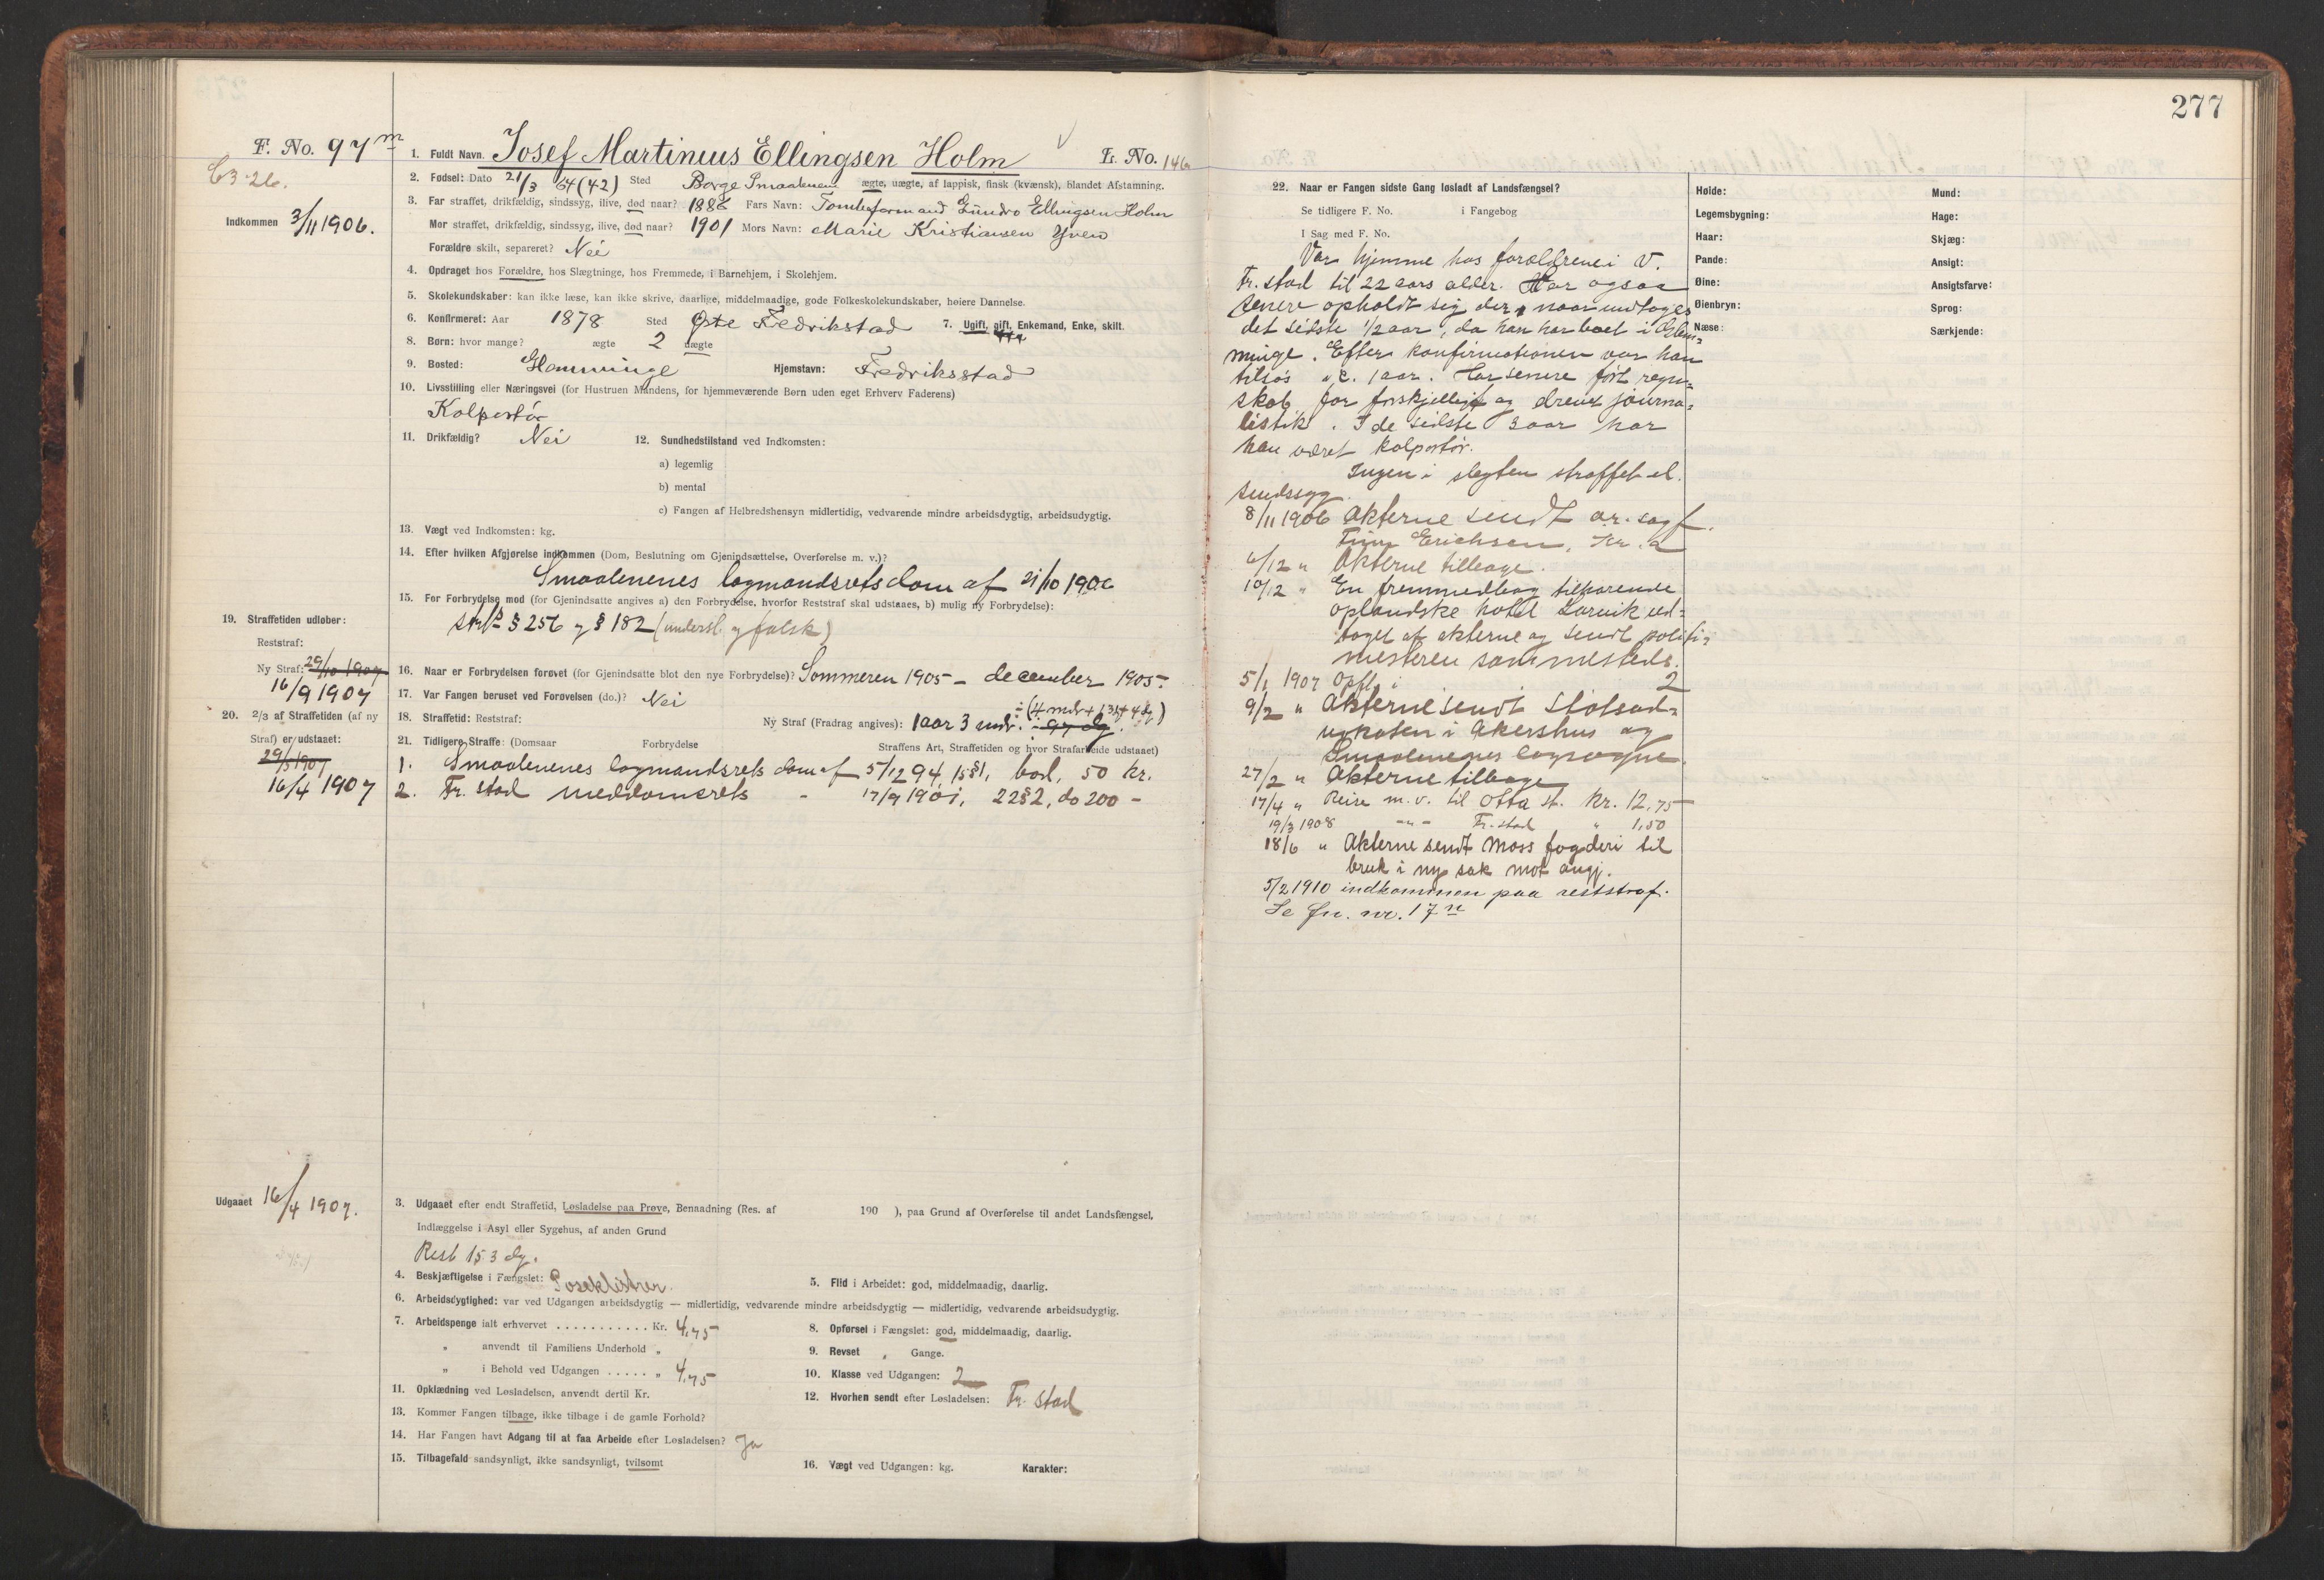 277
F. No. 97 m
63.26.
Indkommen 3/11 1906.
1. Fuldt Navn. Josef Martinius Ellingsen Holm L. No. 146
2. Fødsel: Dato 21/3 64 (42) Sted Borge Smaalenene ægte, uægte, af lappisk, finsk (kvænsk), blandet Afstamning.
3. Far straffet, drikfældig, sindssyg, ilive, død naar? 1886 Fars Navn: Tomteformand Ellingsen Holm
Mor straffet, drikfældig, sindssyg, ilive, død naar? 1901 Mors Navn: Marie Kristiansen Yven
Forældre skilt, separeret? Nei
4. Opdraget hos Forældre, hos Slægtninge, hos Fremmede, i Barnehjem, i Skolehjem.
5. Skolekundskaber: kan ikke læse, kan ikke skrive, daarlige, middelmaadige, gode Folkeskolekundskaber, høiere Dannelse.
6. Konfirmeret: Aar 1878 Sted Øste Fredrikstad 7. Ugift, gift, Enkemand, Enke, skilt.
8. Børn: hvor mange? ægte 2 uægte
9. Bosted: Glemminge Hjemstavn: Fredriksstad
10. Livsstilling eller Næringsvei (for Hustruen Mandens, for hjemmeværende Børn uden eget Erhverv Faderens)
Kolportør
11. Drikfældig? Nei 12. Sundhedstilstand ved Indkomsten:
a) legemlig
b) mental
c) Fangen af Helbredshensyn midlertidig, vedvarende mindre arbeidsdygtig, arbeidsudygtig.
13. Vægt ved Indkomsten: kg.
14. Efter hvilken Afgjørelse indkommen (Dom, Beslutning om Gjenindsættelse, Overførelse m. v.)?
Smaalenenes lagmandsrets dom af 21/10 1906
15. For Forbrydelse mod (for Gjenindsatte angives a) den Forbrydelse, hvorfor Reststraf skal udstaaes, b) mulig ny Forbrydelse):
§ 256 og § 182 (undersl. og falsk)
19. Straffetiden udløber:
Reststraf:
Ny Straf: 29/10 1907
16/9 1907
16. Naar er Forbrydelsen forøvet (for Gjenindsatte blot den nye Forbrydelse)? Sommeren 1905 – december 1905.
17. Var Fangen beruset ved Forøvelsen (do.)? Nei
20. 2/3 af Straffetiden (af ny
Straf) er udstaaet:
29/5 1907
16/4 1907
18. Straffetid: Reststraf: Ny Straf (Fradrag angives): 1 aar 3 mdr. ÷ 97 dg. ÷ (4 mdr + 13 + 4 dg)
21. Tidligere Straffe: (Domsaar Forbrydelse Straffens Art, Straffetiden og hvor Strafarbeide udstaaet)
1. Smaalenenes lagmandsrets dom af 5/12 94 15 § 1, bod, 50 kr.
2. Fr. stad meddomsrets – 17/9 1901, 22 § 2, do 200 –
Udgaaet 16/4 1907.
3. Udgaaet efter endt Straffetid, Løsladelse paa Prøve, Benaadning (Res. af 190 ), paa Grund af Overførelse til andet Landsfængsel,
Indlæggelse i Asyl eller Sygehus, af anden Grund
Rest 153 dg.
4. Beskjæftigelse i Fængslet: Poseklistrer. 5. Flid i Arbeidet: god, middelmaadig, daarlig.
6. Arbeidsdygtighed: var ved Udgangen arbeidsdygtig — midlertidig, vedvarende mindre arbeidsdygtig — midlertidig, vedvarende arbeidsudygtig.
7. Arbeidspenge ialt erhvervet . . . . . . . . . . . Kr. 4,75 8. Opførsel i Fængslet: god, middelmaadig, daarlig.
„ anvendt til Familiens Underhold „ 9. Revset , Gange.
„ i Behold ved Udgangen . . . . . „ 4,75 10. Klasse ved Udgangen: 2
11. Opklædning ved Løsladelsen, anvendt dertil Kr. 12. Hvorhen sendt efter Løsladelsen: Fr. stad
13. Kommer Fangen tilbage, ikke tilbage i de gamle Forhold?
14. Har Fangen havt Adgang til at faa Arbeide efter Løsladelsen? Ja
15. Tilbagefald sandsynligt, ikke sandsynligt, tvilsomt 16. Vægt ved Udgangen: kg. Karakter:
22. Naar er Fangen sidste Gang løsladt af Landsfængsel?
Se tidligere F. No. i Fangebog
I Sag med F. No.
Var hjemme hos forældrene i V.
Fr. stad til 22 aars alder. Har ogsaa
senere opholdt sig der, naar undtages
det sidste 1/2 aar, da han har boet i Glem-
minge. Efter konfirmationen var han
tilsjøs c. 1 aar. Har senere ført regn-
skab for forskjellige og drevet journa-
listik. I de sidste 3 aar har
han været kolportør.
Ingen i slegten straffet el.
sindssyg.
8/11 1906 Akterne sendt o.r. sagf.
Erichsen, Kr.a
6/12 „ Akterne tilbage.
10/12 „ En fremmedbog tilhørende
oplandske hotel Larvik ud-
taget af akterne og sendt politi-
mesteren sammesteds.
5/1 1907 Opfl. i 2
9/2 „ Akterne sendt Statsad-
vokaten i Akershus og
Smaalenenes lagsogne.
27/2 „ Akterne tilbage
17/4 „ Reise m.v. til Otta st. kr. 12,75
19/3 1908 –„– Fr. stad „ 1,50
18/6 „ Akterne sendt Moss fogderi til
bruk i ny sak mot angj.
5/2 1910 indkommen paa reststraf.
Se fn. nr. 17 n
Høide:
Legemsbygning:
Haar:
Pande:
Øine:
Øienbryn:
Næse:
Mund:
Hage:
Skjæg:
Ansigt:
Ansigtsfarve:
Sprog:
Særkjende: